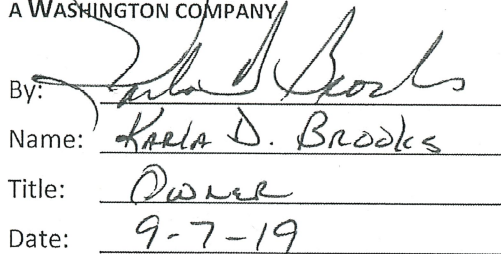 A WASHINGTON COMPANY
By: Karla D Brooks
Name: Karla D. Brooks
Title: Owner
Date: 9-7-19